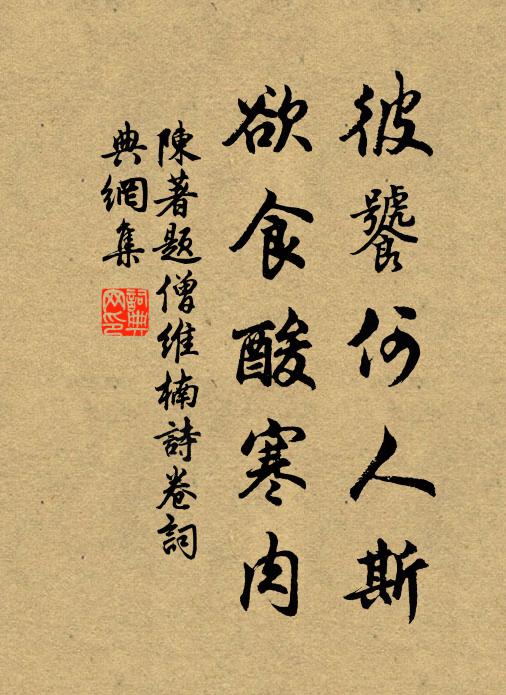 彼饕何人斯
欲食酸寒肉
陳著題僧維楠詩卷詞
典網集
詞典
网印